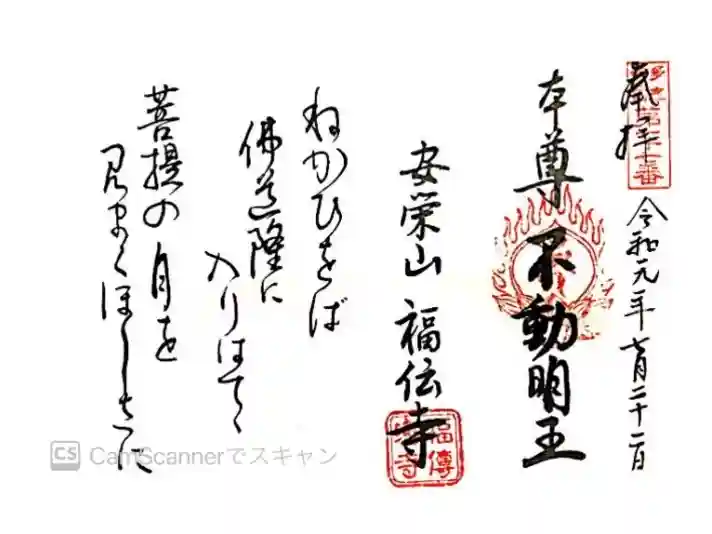 奉拝
令和元年七月二十二日
本尊 不動明王
安栄山 福伝寺
ねかひをば
佛道隆に
入りはてゝ
菩提の月を
見まくほしさに
CS CamScannerでスキャン